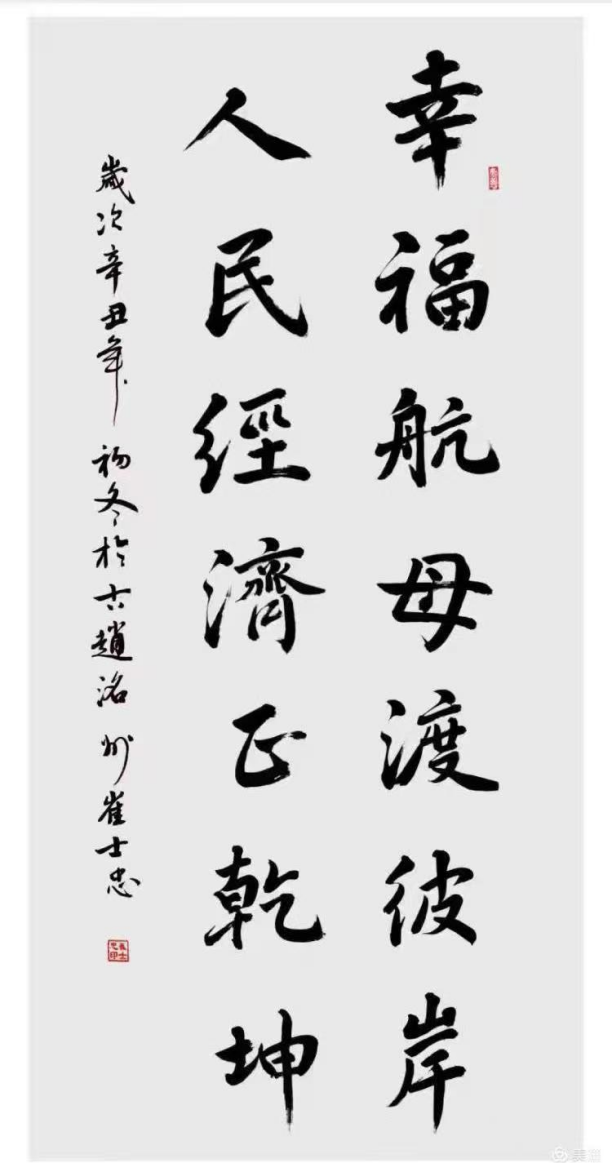 幸福航母渡彼岸
人民經濟正乾坤
歲次辛丑年初冬於古趙洺州崔士忠
崔士忠印
美篇